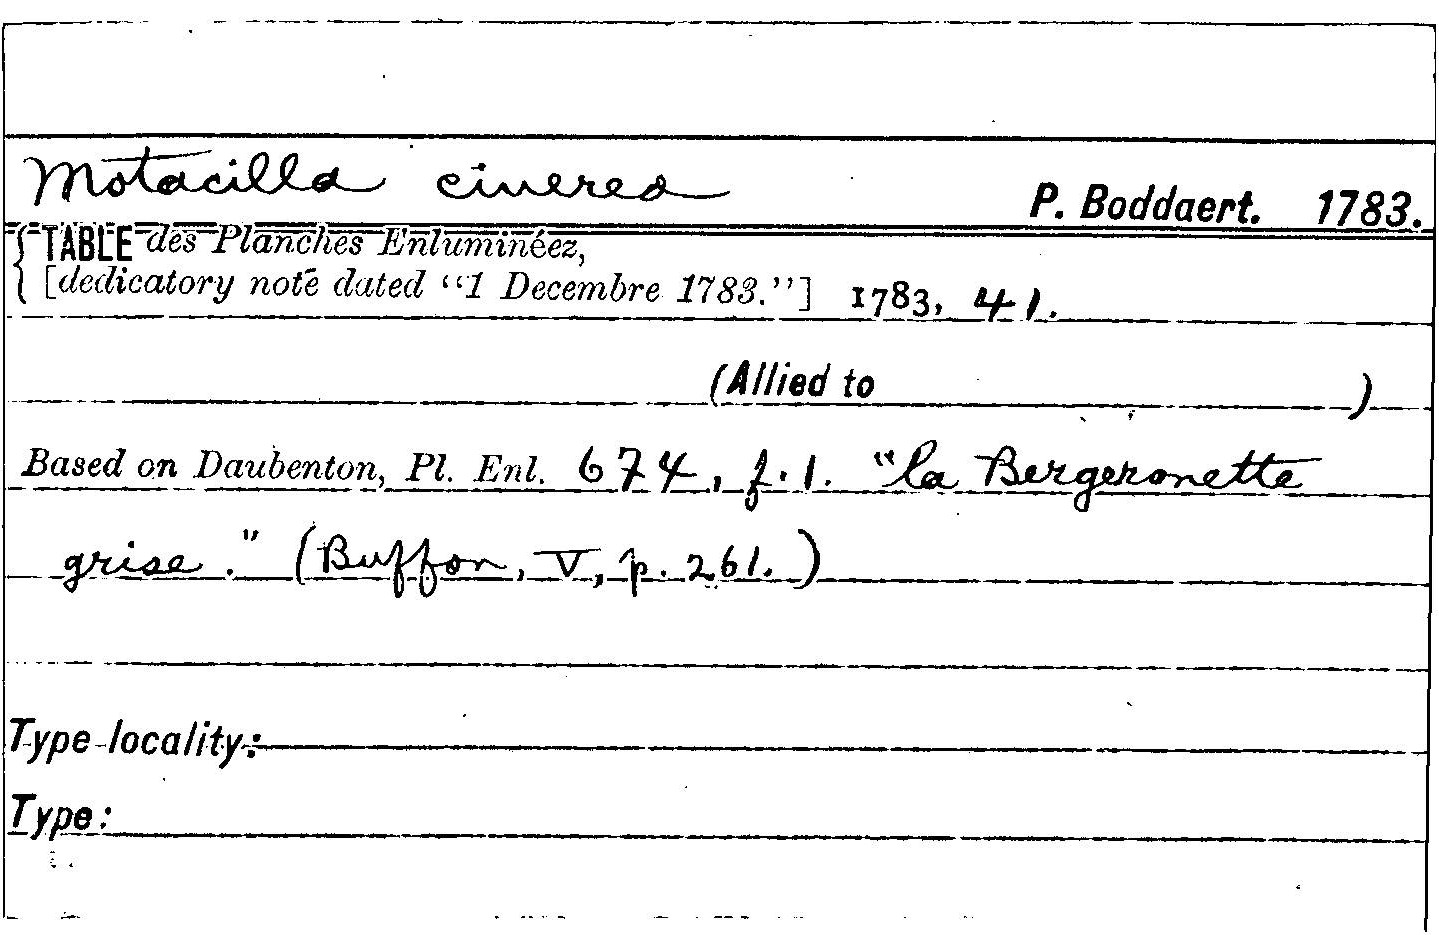 Motacilla cinerea P. Boddaert. 1783.
TABLE des Planches Enluminéez,
[dedicatory note dated "1 Decembre 1783."] 1783, 41.
(Allied to )
Based on Daubenton, Pl. Enl. 674, f.1. "la Bergeronette
grise." (Buffon, V, p. 261.)
Type locality:
Type: